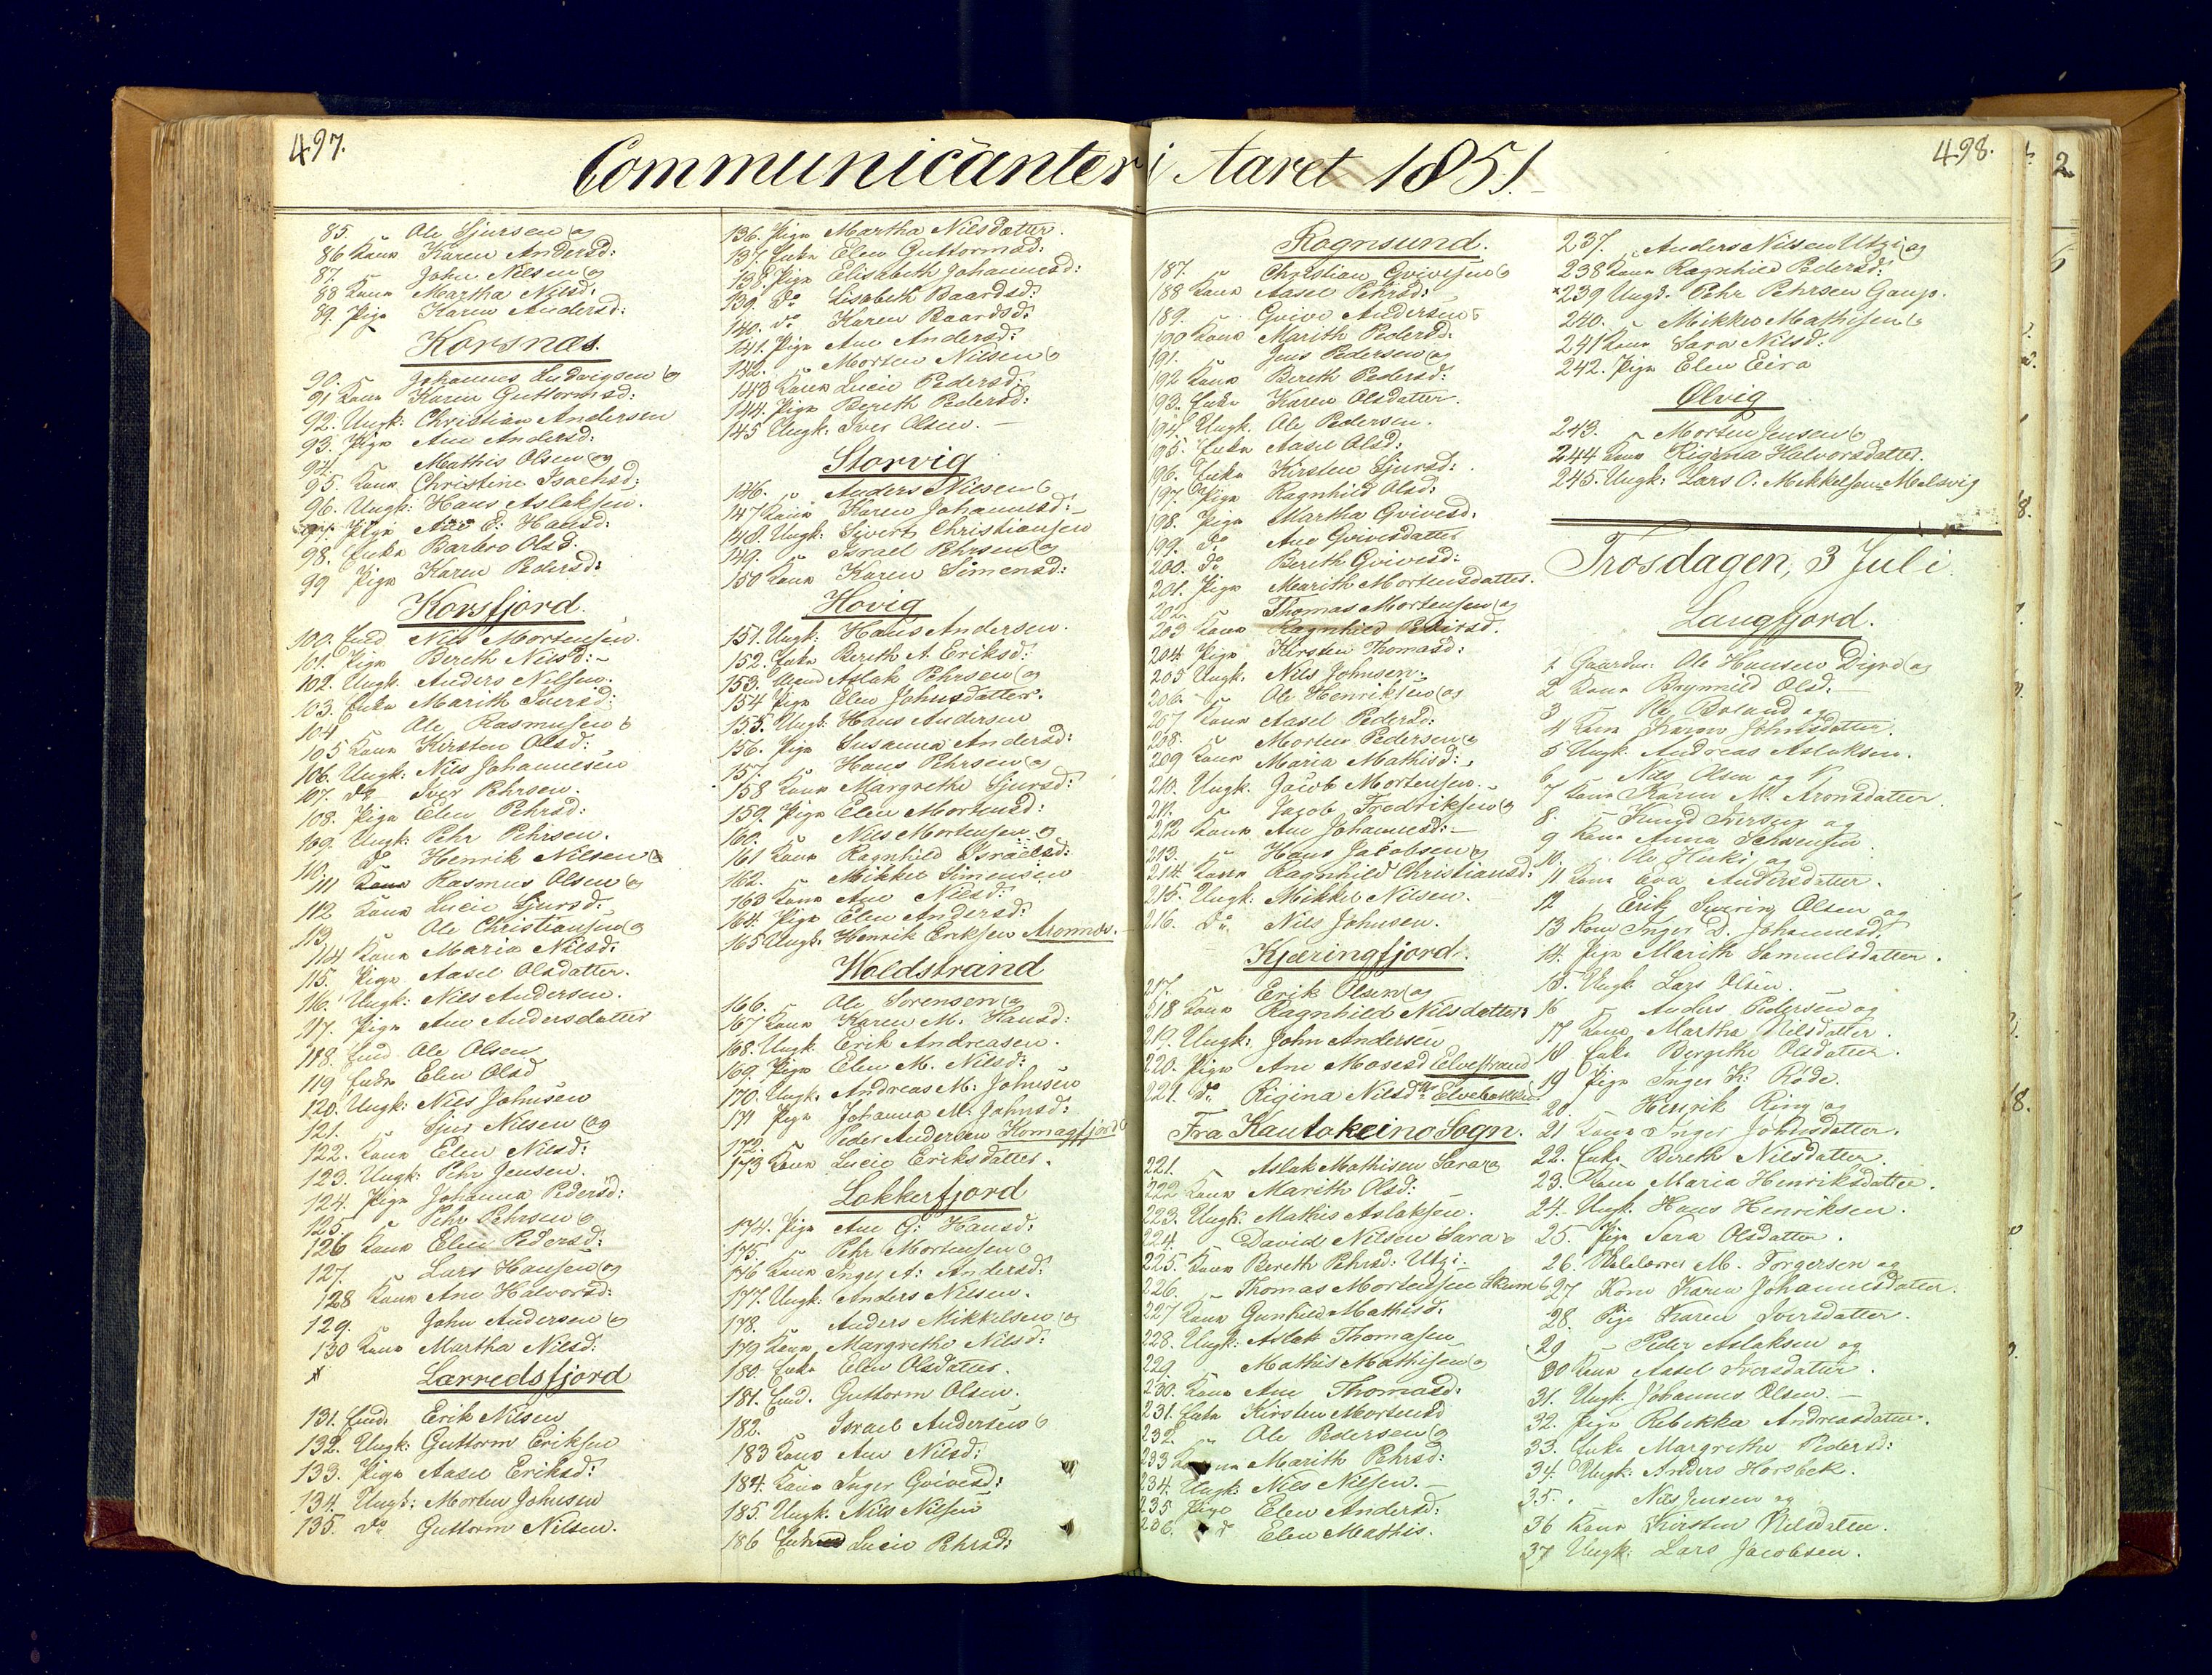 497.
Communicanter i Aaret 1851.
498.
85. Ole Sjursen og
86 Kone Karen Andersd:
87. John Nilsen og
88 Kone Martha Nilsd:
89. Pige Karen Andersd:
Korsnæs.
90. Johannes Ludvigsen og
91 Kone Karen Guttormsd:
92. Ungk: Christian Andersen
93. Pige Ane Andersd:
94. Mathis Olsen og
95. Kone Christine Isachsd:
96. Ungk: Hans Aslaksen.
97. Pige Ane E. Hansd:
98. Enke Barbro Olsd.
99 Pige Karen Pedersd:
Korsfjord.
100. Emd Nils Mortensen.
101. Pige Bereth Nilsd:
102. Ungk. Anders Nilsen.
103. Enke Marith Iversd:
104 Ole Rasmusen og
105 Kone Kirsten Olsd:
106. Ungk: Nils Johannesen
107. do Iver Pehrsen.
108. Pige Elen Pehrsd:
109. Ungk: Pehr Pehrsen.
110. do Henrik Nilsen
111 Rasmus Olsen og
112 Kone Lucie Sjursd:
113 Ole Christiansen og
114 Kone Maria Nilsd:
115. Pige Aasel Olsdatter.
116. Ungk: Nils Andersen.
117. Pige Ane Andersdatter
118. Emd Ole Olsen
119 Enke Elen Olsd
120. Ungk: Nils Johnsen
121. Sjur Nilsen og
122. Kone Elen Nilsd:
123. Ungk: Pehr Jensen.
124. Pige Johanna Pedersd:
125. Pehr Pehrsen og
126 Kone Elen Pedersd:
127. Lars Hansen og
128 Kone Ane Halvorsd:
129. John Andersen og
130 Kone Martha Nilsd:
Lærredsfjord
131. Emd. Erik Nilsen
132. Ungk: Guttorm Eriksen
133. Pige Aasel Eriksd:
134. Ungk: Morten Johnsen
135. do Guttorm Nilsen.
136. Pige Martha Nilsdatter.
137. Enke Elen Guttormsd:
138. Pige Elisabeth Johannesd:
139. do Lisabeth Baardsd:
140. do Karen Baardsd:
141. Pige Ane Andersd:
142. Morten Nilsen og
143 Kone Lucie Pedersd:
144. Pige Bereth Pedersd:
145 Ungk: Iver Olsen.
Storvig
146. Anders Nilsen og
147 Kone Karen Johannesd:
148. Ungk: Sivert Christiansen
149. Israel Pehrsen og
150 Kone Karen Simensd:
Hovig
151. Ungk: Hans Andersen.
152. Enke Bereth A. Eriksd:
153. Aslak Pehrsen og
154 Pige Elen Johnsdatter.
155. Ungk: Hans Andersen
156. Pige Susanna Andersd:
157. Hans Pehrsen og
158 Kone Margrethe Sjursd:
159. Pige Elen Mortensd:
160. Nils Mortensen og
161 Kone Ragnhild Israelsd:
162. Mikkel Simensen
163 Kone Ane Nilsd:
164. Pige Elen Andersd:
165 Ungk. Henrik Eriksen Aronnæs.
Woldstrand
166. Ole Sørensen og
167 Kone Karen M. Hansd:
168. Ungk. Erik Andreasen.
169 Pige Elen M. Nilsd:
170. Ungk. Andreas M. Johnsen
171 Pige Johanna M. Johnsd:
172. Peder Andersen Komagfjord og
173 Kone Lucie Eriksdatter.
Lokkerfjord
174. Pige Ane G: Hansd:
175. Pehr Mortensen og
176 Kone Inger A: Andersd:
177. Ungk: Anders Nilsen.
178. Anders Mikkelsen og
179 Kone Margrethe Nilsd:
180. Enke Elen Olsdatter.
181. Emd. Guttorm Olsen.
182. Israel Andersen og
183 Kone Ane Nilsd:
184. Kone Inger Gvivesd:
185. Ungk. Nils Nilsen
186 Lucie Pehrsd:
Rognsund.
187. Christian Gvivesen og
188 Kone Aasel Pehrsd:
189. Gvive Andersen og
190 Kone Marith Pedersd:
191. Jens Pedersen og
192 Kone Bereth Pedersd:
193. Enke Karen Olsdatter.
194. Ungk. Ole Pedersen.
195. Enke Aasel Olsd:
196. Enke Kirsten Sjursd:
197. Pige Ragnhild Olsd:
198. Pige Martha Gvivesd:
199. do Ane Gvivesdatter
200. do Bereth Gvivesd:
201. Pige Marith Mortensdatter.
202. Thomas Mortensen og
203 Kone Ragnhild Pehrsd.
204. Pige Kirsten Thomasd:
205 Ungk. Nils Johnsen.
206. Ole Henriksen og
207 Kone Aasel Pedersd:
208. Morten Pedersen og
209 Kone Maria Mathisd:
210. Ungk. Jacob Mortensen.
211. Jacob Fredriksen og
212 Kone Ane Johannesd:
213. Hans Jacobsen og
214. Kone Ragnhild Christiansd:
215. Ungk: Mikkel Nilsen.
216. do Nils Johnsen.
Kjæringfjord.
217. Erik Olsen og
218 Kone Ragnhild Nilsdatter
219. Ungk: John Andersen
220. Pige Ane Mosesd Elvestrand
221. do Rigina Nilsdtr Elvebakken
Fra Kautokeino Sogn.
221. Aslak Mathisen Sara og
222 Kone Marith Olsd:
223. Ungk. Mathis Aslaksen.
224. David Nilsen Sara og
225. Kone Bereth Pehrsd: Utzi
226. Thomas Mortensen Skum og
227 Kone Gunhild Mathisd:
228. Ungk: Aslak Thomasen
229. Mathis Mathisen og
230. Kone Ane Thomasd:
231. Enke Kirsten Mortensd
232. Ole Pedersen og
233 Marith Pehrsd:
234. Ungk: Nils Nilsen.
235 Pige Elen Andersd:
236. do Elen Mathis.
237. Anders Nilsen Utzi og
238 Kone Ragnhild Pedersd:
*239 Ungk. Pehr Pehrsen Gaup.
240. Mikkel Mathisen og
241 Kone Sara Nilsd:
242. Pige Elen Eira
Ølvig
243. Morten Jensen og
244 Kone Rigina Halvorsdatter.
245. Ungk: Lars O. Mikkelsen Melsvig
Trosdagen, 3 Juli
Langfjord.
1. Ole Hansen Digre og
2 Kone Brynnild Olsd:
3 Boland og
4 Kone Karen Johnsdatter.
5 Ungk. Andreas Aslaksen.
6 Nils Olsen og
7 Kone Karen M. Aronsdatter.
8. Knud Iversen og
9 Kone Anna
10. Ole og
11 Kone Eva Andersdatter.
12 Erik Severin Olsen og
13 Kone Inger D. Johannesd.
14. Pige Marith Samuelsdatter.
15. Ungk Lars Olsen.
16 Anders Pedersen og
17 Kone Martha Nilsdatter.
18 Enke Bergithe Olsdatter.
19 Pige Inger K: Røde.
20. Henrik Ring og
21 Kone Inger Johnsdatter.
22. Enke Bereth Nilsdatter.
23. Maria Henriksdatter.
24. Ungk. Hans Henriksen.
25. Pige Sara Olsdatter.
26. M. Torgersen og
27 Kone Karen Johannesdatter.
28. Pige Karen Iversdatter.
29 Peder Aslaksen og
30 Kone Aasel Iversdatter.
31. Ungk. Johannes Olsen.
32. Pige Rebekka Andreasdatter.
33. Enke Margrethe Pedersd:
34. Ungk: Anders Horsbek.
35. Nils Jensen og
36 Kone Kirsten Nilsdatter.
37 Ungk: Lars Jacobsen.